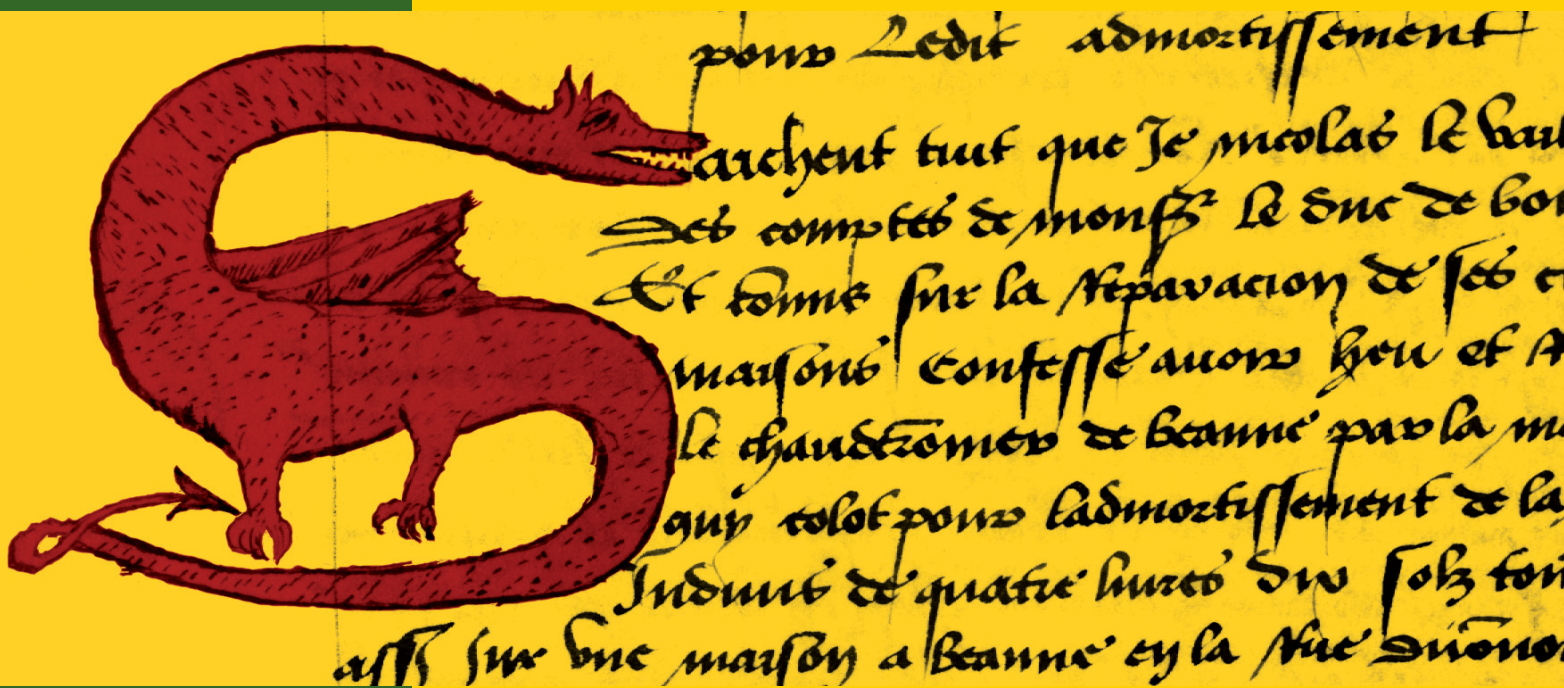 pour Ledit admortissement
achent tuit que Je nicolas le vail
des comptes de monsr le duc de bo
Et commis sur la Reparacion de ses c
maisons Confesse avoir heu et
le chauderonnier de beaune par la m
guy colot pour ladmortissement de la
Induuis de quatre liures dix solz tou
ass sur vne maison a beaune en la Rue